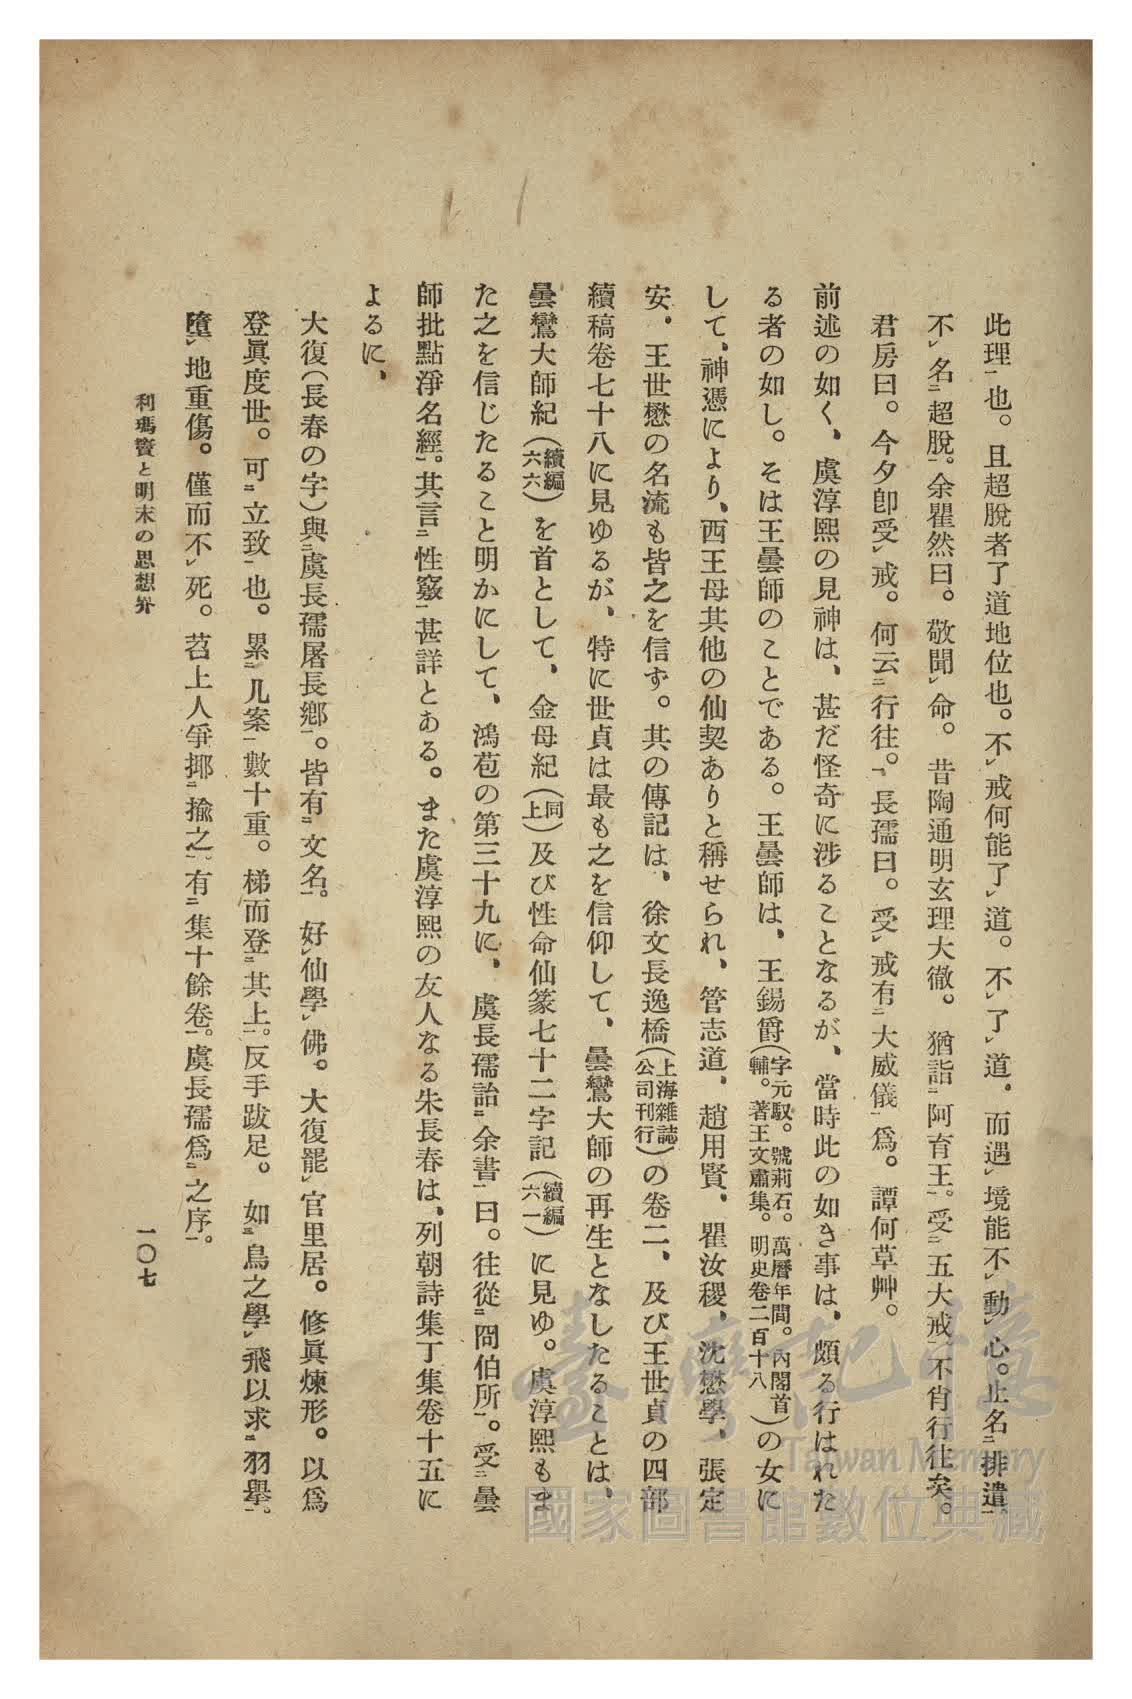 此理㆒也。且超脫者了道地位也。不㆑戒何能了㆑道。不㆑了㆑道、而遇㆑境能不㆑動㆑心。止名㆓排遣㆒、
不㆑名㆓超脫㆒。余瞿然曰。敬聞㆑命。昔陶通明玄理大徹。猶詣㆓阿育王㆒。受㆓五大戒㆒不肯行往矣。
君房曰。今夕卽受㆑戒。何云㆓行往㆒。長孺曰。受㆑戒有㆓大威儀㆒爲。譚何草艸。
前述の如く、虞淳熙の見神は、甚だ怪奇に涉ることなるが、當時此の如き事は、頗る行はれた
る者の如し。そは王曇師のことである。王曇師は、王錫爵(字元馭。號荊石。萬曆年間。內閣首輔。著王文肅集。明史卷二百十八)の女に
して、神憑により、西王母其他の仙契ありと稱せられ、管志道、趙用賢、瞿汝稷、沈懋學、張定
安、王世懋の名流も皆之を信ず。共の傳記は、徐文長逸橋(上海雜誌公司刊行)の卷二、及び王世貞の四部
續稿卷七十八に見ゆるが、特に世貞は最も之を信仰して、曇鸞大師の再生となしたることは、
曇鸞大師紀(續編六六)を首として、金母紀(同上)及び性命仙篆七十二字記(續編六一)に見ゆ。虞淳熙もま
た之を信じたること明かにして、鴻苞の第三十九に、虞長孺詒㆓余書㆒曰。往從㆓冏伯所㆒。受㆓曇
師批點淨名經㆒。其言㆓性竅㆒甚詳とある。また虞淳熙の友人なる朱長春は、列朝詩集丁集卷十五に
よるに、
大復(長春の字)與㆓虞長孺屠長鄕㆒。皆有㆓文名㆒。好㆑仙學㆑佛。大復罷㆑官里居。修眞煉形。以爲
登眞度世。可㆓立致㆒也。累㆓几案㆒數十重。梯而登㆓其上㆒。反手跋足。如㆔鳥之學㆑飛以求㆓羽舉㆒。
墮㆑地重傷。僅而不㆑死。苕上人爭揶㆓揄之㆒。有㆓集十餘卷㆒。虞長孺爲㆓之序㆒。
利瑪竇と明末の思想界
一〇七
臺灣記憶
Taiwan Memory
國家圖書館數位典藏